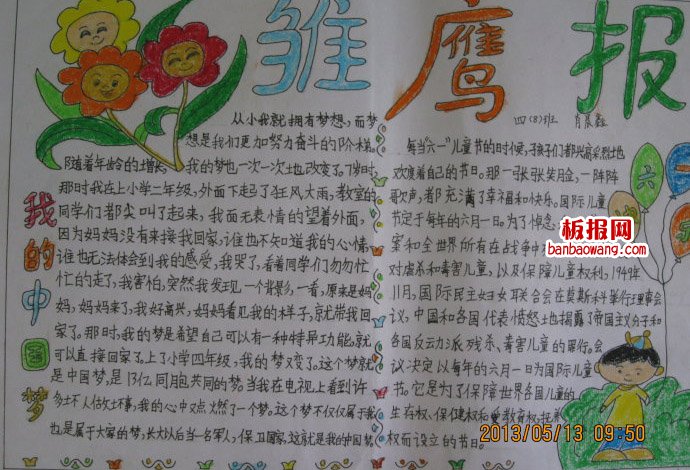 雏鹰报
四(8)班
我的中国梦
从小我就拥有梦想,而梦
想是我们更加努力奋斗的阶梯。
随着年龄的增长,我的梦也一次一次地改变了。7岁时,
那时我在上小学二年级,外面下起了狂风大雨,教室的
同学们都尖叫了起来,我面无表情的望着外面,
因为妈妈没有来接我回家,谁也不知道我的心情,
谁也无法体会到我的感受,我哭了,看着同学们匆匆忙
忙的走了,我害怕,突然我发现一个背影,一看,原来是妈
妈,妈妈来了,我好高兴,妈妈看见我的样子,就带我回
家了。那时,我的梦是希望自己可以有一种特异功能,就
可以直接回家了。上了小学四年级,我的梦又变了。这个梦就
是中国梦,是13亿同胞共同的梦。当我在电视上看到许
多士不人估牧土不事,我的心中又点燃了一个梦。这个梦不仅仅属于我,
也是属于大家的梦,长大以后当一名军人,保卫国家,这就是我的中国梦
每当"六一"儿童节的时候,孩子们都兴高采烈地
欢度着自己的节日。那一张张笑脸,一阵阵
歌声,都充满了幸福和快乐。国际儿童
节定于每年的六月一日。为了悼念
案和全世界所有在战争中
对虐杀和毒害儿童,以及保障儿童权利,1949年
11月,国际民主妇女联合会在莫斯科举行理事会
议,中国和各国代表愤怒地揭露了帝国主义分子和
各国反云力派残杀、毒害儿童的罪行。会
议决定以每年的六月一日为国际儿童
节。它是为了保障世界各国儿童的
生存权、保健权和受教育权、抚养
权而设立的节日。
六一
乐
板报网
banbaowang.com
2013/05/13 09:50